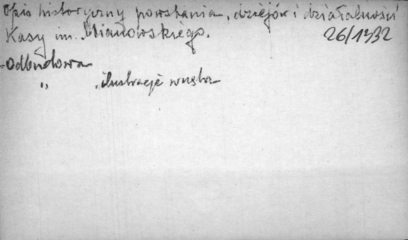 Opis historyczny powstania, dziejów i działalności
Kasy im. Mianowskiego. 26/1932
- Odbudowa
" , ilustracje wnętrz